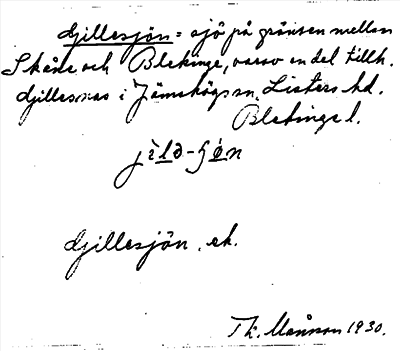 Gillesjön = sjö på gränsen mellan
Skåne och Blekinge, varav en del tillh.
Gillesnäs i Jämshögs sn, Listers hd.
Blekinge l.
Gillesjön, ek.
1930.